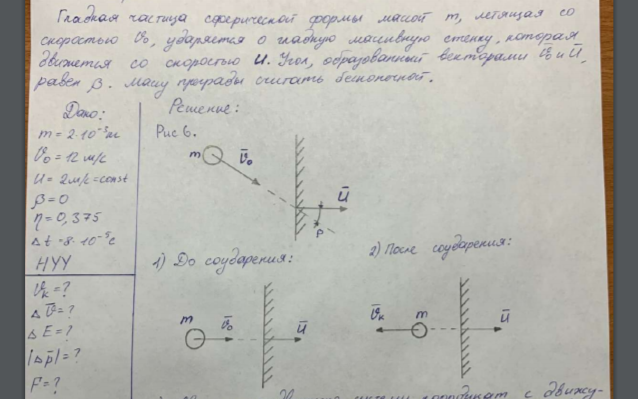 Гладкая частица сферической формы массой m, летящая со
скоростью v̄₀, ударяется о гладкую массивную стенку, которая
движется со скоростью U. Угол, образованный векторами v̄₀ и Ū,
равен β. Массу преграды считать бесконечной.
Дано:
m = 2·10⁻⁵ кг
v₀ = 12 м/с
U = 2 м/с = const
β = 0
η = 0,375
Δt = 8·10⁻⁵ с
НУУ
v̄ₖ = ?
Δv̄ = ?
ΔE = ?
|Δp̄| = ?
F = ?
Решение:
Рис 6.
m
v̄₀
Ū
β
1) До соударения:
m
v̄₀
Ū
2) После соударения:
v̄ₖ
m
Ū
координат с движу-